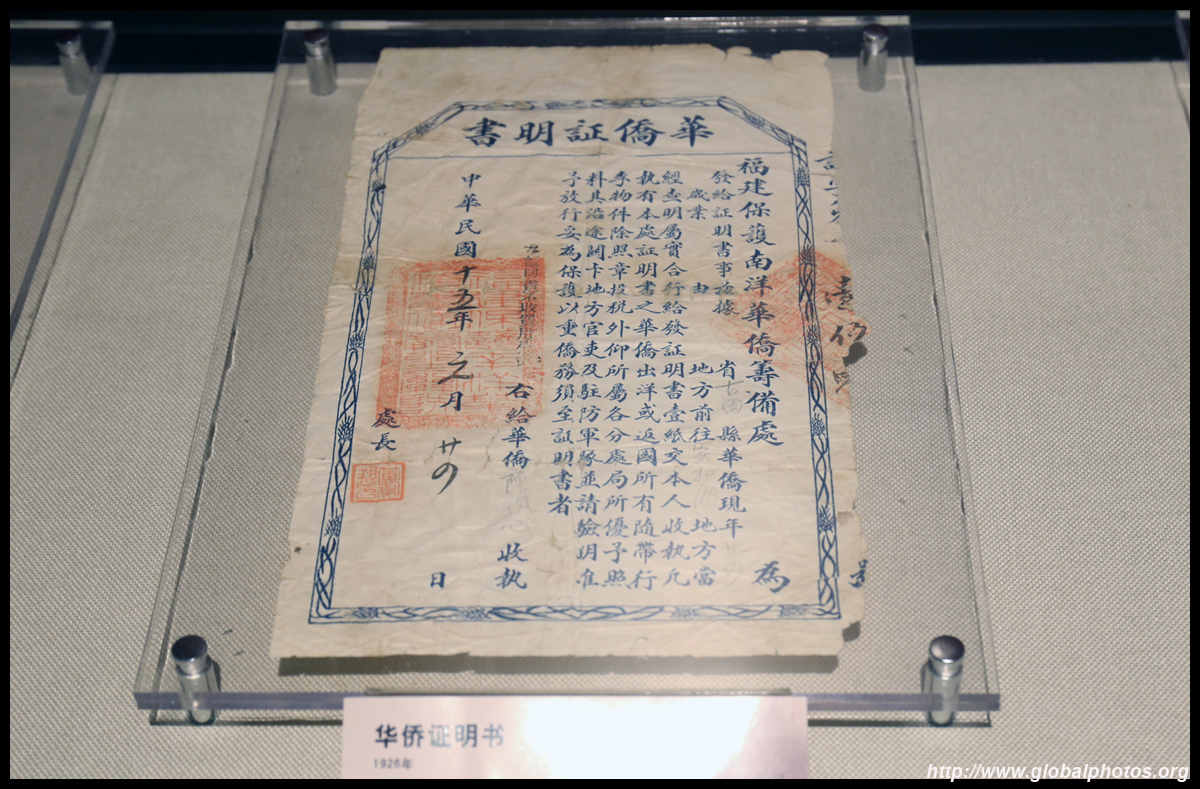 華僑証明書
壹佰
福建保護南洋華僑籌備處 為
發給証明書事茲據 省古田縣華僑現年
歲業 由 地方前往 地方當
經查明屬實合行給發証明書壹紙交本人收執凡
執有本處証明書之華僑出洋或返國所有隨帶行
李物件除照章投税外仰所屬各分處局所優予照
料其沿途關卡地方官吏及駐防軍隊並請驗明准
予放行妥為保護以重僑務須至証明書者
右給華僑 收執
中華民國十五年元月廿四日
處長
华侨证明书
1926年
http://www.globalphotos.org